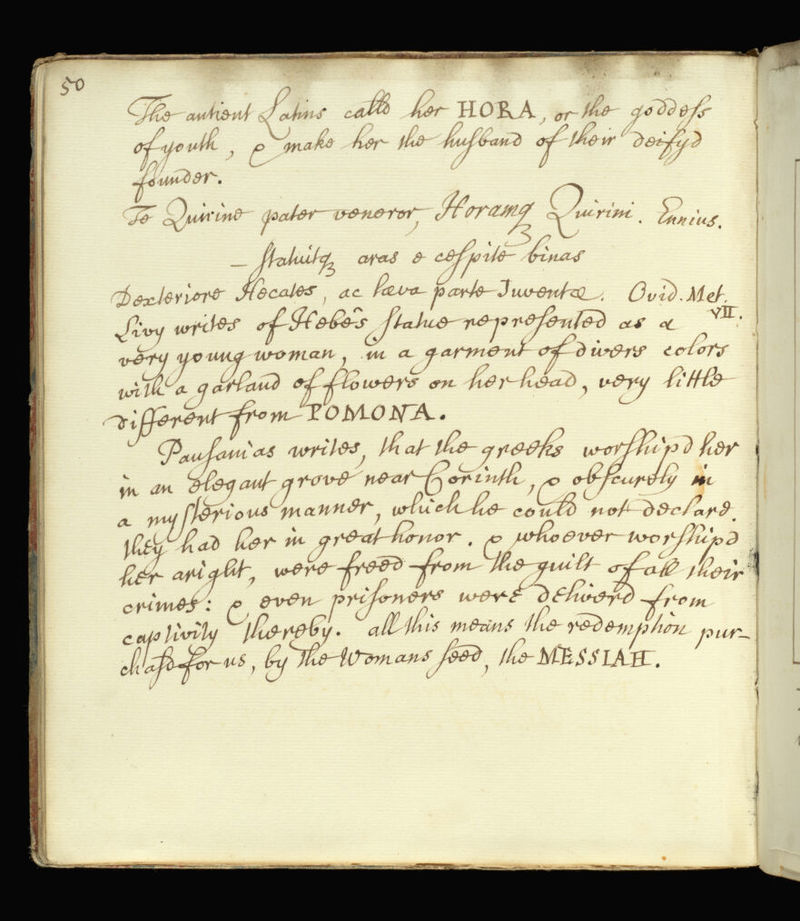 50
The antient Latins calld her HORA, or the goddeſs
of youth, & make her the huſband of their deifyd
founder.
Te Quirine pater veneror, Horamq3 Quirini. Ennius.
– ſtatuitq3 aras e ceſpite binas
Dexteriore Hecates, ac læva parte Iuventæ. Ovid. Met.
VII.
Livy writes of Hebe's ſtatue repreſented as a
very young woman, in a garment of divers colors
with a garland of flowers on her head, very little
different from POMONA.
Pauſanias writes, that the greeks worſhip'd her
in an elegant grove near Corinth, & obſcurely in
a myſterious manner, which he could not declare.
they had her in great honor. & whoever worſhip'd
her aright, were freed from the guilt of all their
crimes: & even priſoners were deliverd from
captivity thereby. all this means the redemption pur-
chaſd for us, by the Womans ſeed, the MESSIAH.